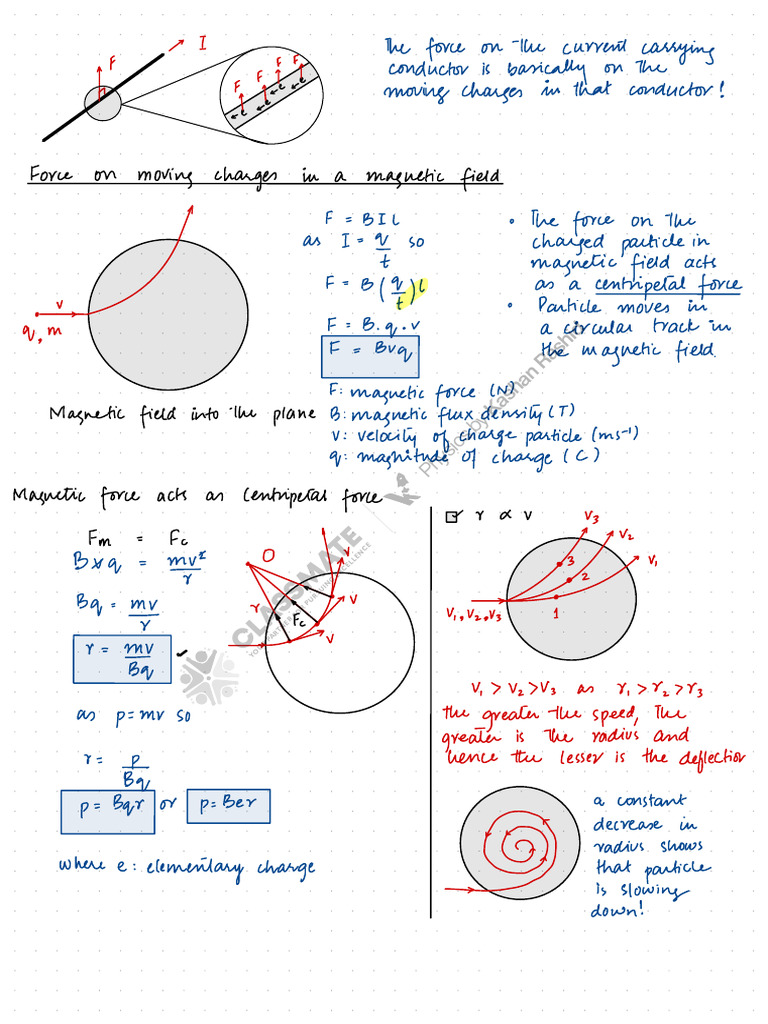 F
I
F F F F
e e e e
The force on the current carrying
conductor is basically on the
moving charges in that conductor!
Force on moving charges in a magnetic field
v
q, m
Magnetic field into the plane
F = BIl
as I = q/t so
F = B (q/t) l
F = B.q.v
F = Bvq
F: magnetic force (N)
B: magnetic flux density (T)
v: velocity of charge particle (ms⁻¹)
q: magnitude of charge (C)
• The force on the
charged particle in
magnetic field acts
as a centripetal force
• Particle moves in
a circular track in
the magnetic field.
Physics by Kashan Rashid
CLASSMATE
Magnetic force acts as centripetal force
Fm = Fc
Bvq = mv²/r
Bq = mv/r
r = mv/Bq ✓
as p=mv so
r = p/Bq
p = Bqr or p = Ber
where e: elementary charge
O
r
Fc
v
v
v
☑ r ∝ v
v3
v2
v1
3
2
1
v1, v2, v3
v1 > v2 > v3 as r1 > r2 > r3
the greater the speed, the
greater is the radius and
hence the lesser is the deflection
a constant
decrease in
radius shows
that particle
is slowing
down!